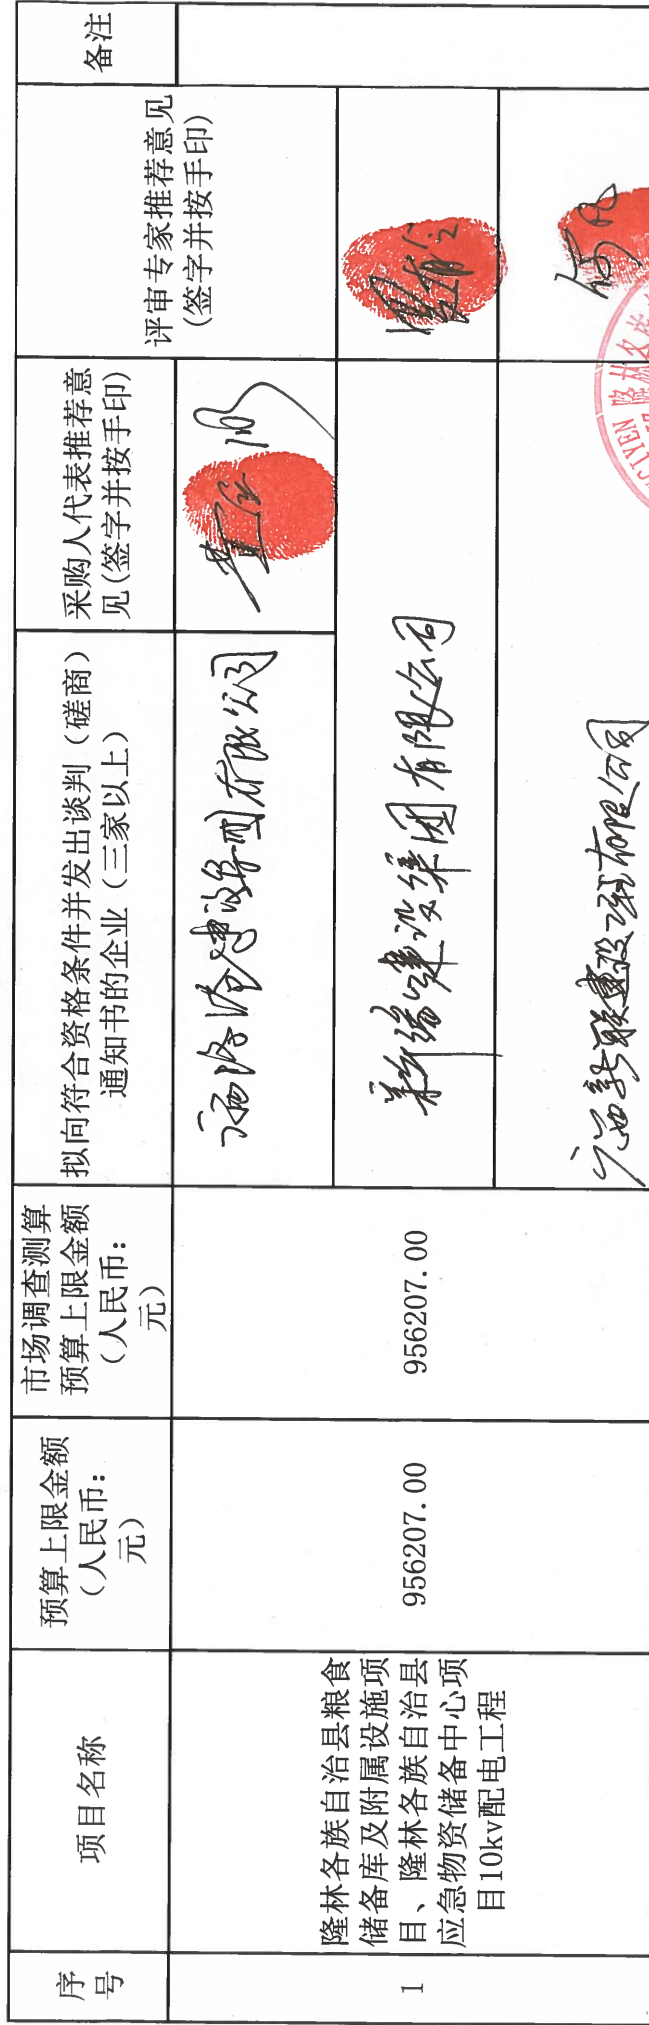 序
号
项目名称
预算上限金额
（人民币：
元）
市场调查测算
预算上限金额
（人民币：
元）
拟向符合资格条件并发出谈判（磋商）
通知书的企业（三家以上）
采购人代表推荐意
见(签字并按手印)
评审专家推荐意见
(签字并按手印)
备注
1
隆林各族自治县粮食
储备库及附属设施项
目、隆林各族自治县
应急物资储备中心项
目10kv配电工程
956207.00
956207.00
建设集团有限公司
建设集团有限公司
广西新联建设工程有限公司
隆林各族